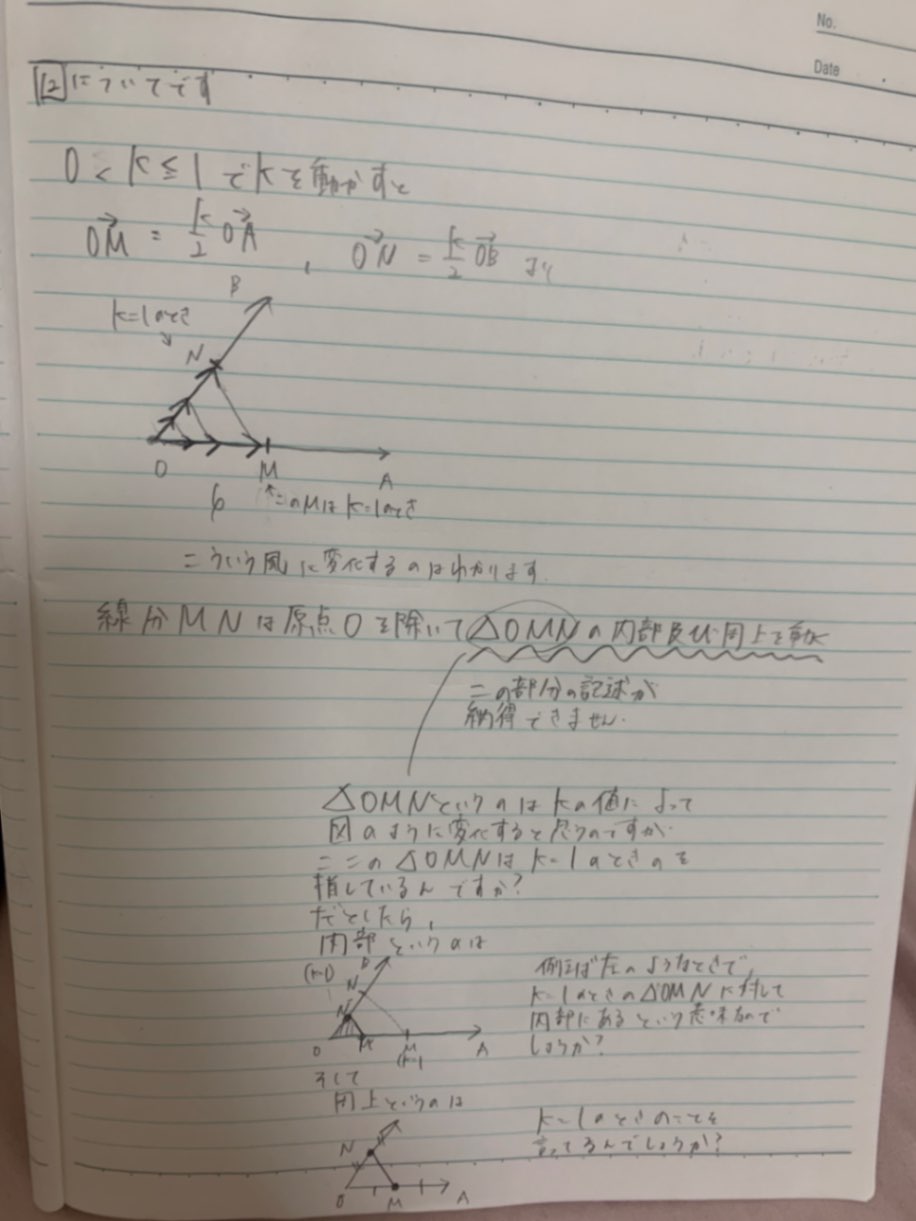 No.
Date
[2]についてです
0 < k ≦ 1 でkを動かすと
OM→ = k/2 OA→ , ON→ = k/2 OB→ より
B
k=1のとき
N
O M A
このMはk=1のとき
こういう風に変化するのはわかります.
線分MNは原点Oを除いて△OMNの内部及び周上を動く
この部分の記述が
納得できません.
△OMNというのはkの値によって
図のように変化すると思うのですが
ここの△OMNはk=1のときのを
指しているんですか?
だとしたら,
内部というのは
B
(k=1)
N
N
O M M A
(k=1)
例えば左のようなときで,
k=1のときの△OMNに対して
内部にあるという意味なので
しょうか?
そして
周上というのは
N
O M A
k=1のときのことを
言ってるんでしょうか?